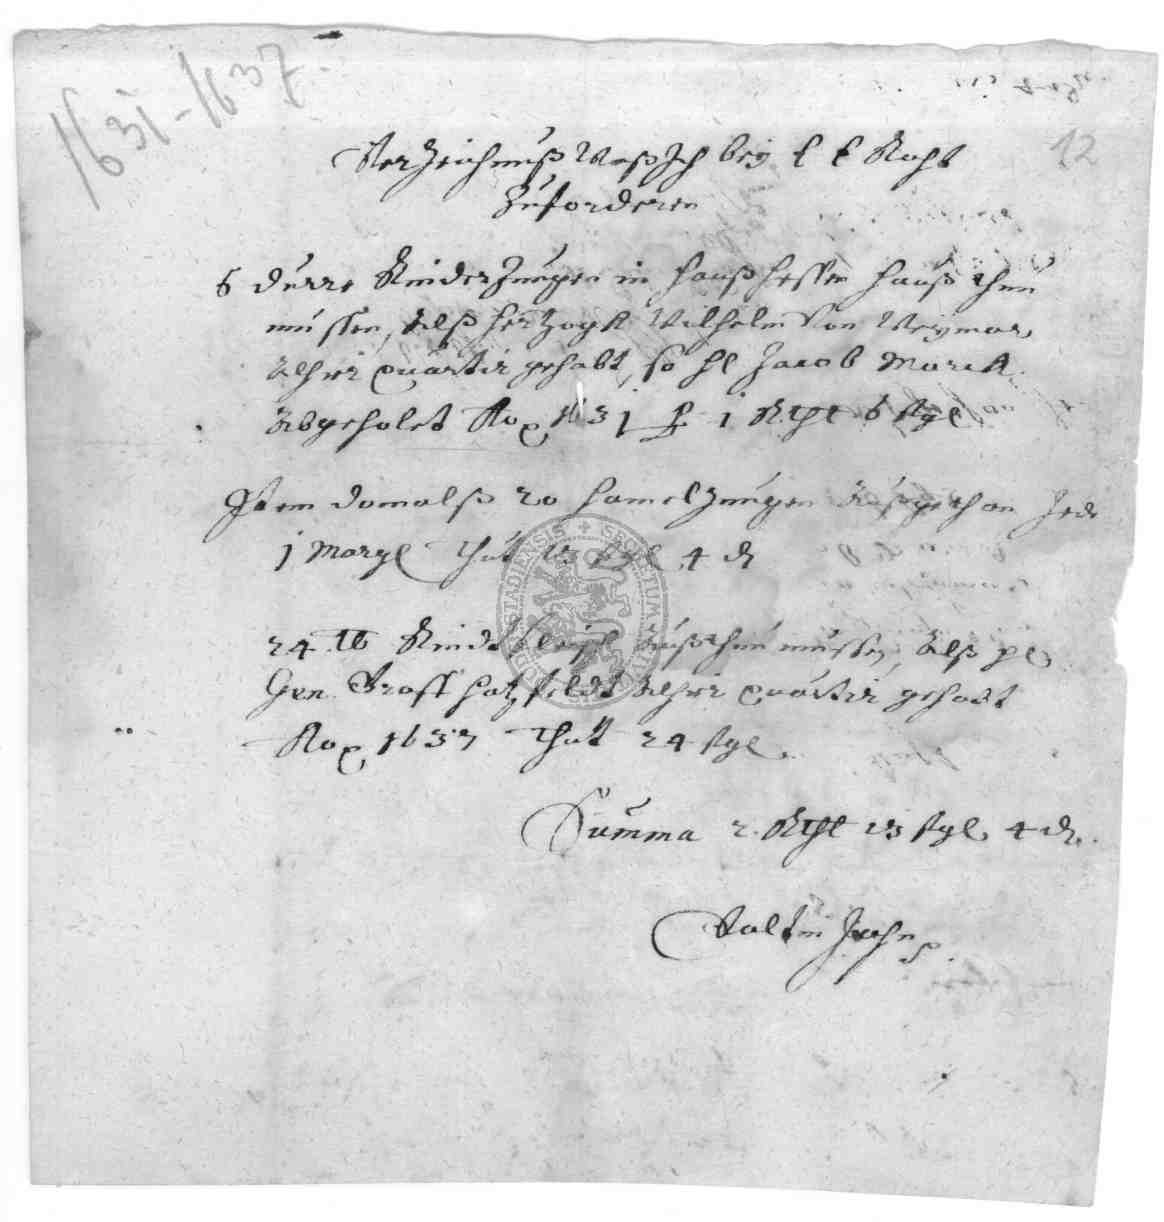 1631-1637.
12
Verzeichnuß Waß Ich bey E E Raht
Zufordern
6 durre Rinder Zungen in hauß hessen hauß thun
müssen, Alß herzogk Wilhelm Von Weymar,
Alhier quartir gehabt, so hl Jacob Marck
Abgeholet Ao 1631 p 1 Rthl 6 sgl
Item domalß 20 hamel Zungen außgethan Jede
1 Margl Thut 13 sgl 4 d
24 lb Rindtfleisch außthun müssen, Alß
Gen. Graff hatzfeldt Alhier quartir gehabt
Ao 1637 Thutt 24 sgl.
Summa 2. Rthl 13 sgl. 4 d.
Valtin
SECRETUM